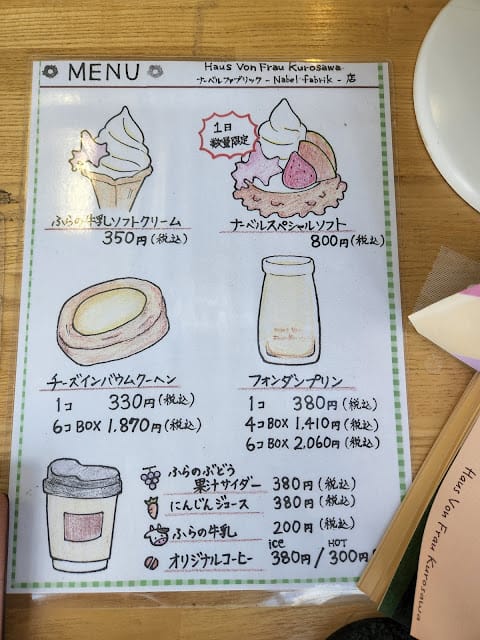 MENU
Haus Von Frau Kurosawa
ナーベルファブリック - Nabel fabrik - 店
1日
数量限定
ふらの牛乳ソフトクリーム
350円(税込)
ナーベルスペシャルソフト
800円(税込)
チーズインバウムクーヘン
1コ 330円(税込)
6コBOX 1,870円(税込)
フォンダンプリン
1コ 380円(税込)
4コBOX 1,410円(税込)
6コBOX 2,060円(税込)
ふらのぶどう
果汁サイダー 380円(税込)
にんじんジュース 380円(税込)
ふらの牛乳 200円(税込)
ice HOT
オリジナルコーヒー 380円/300円
Haus Von Frau Kurosawa